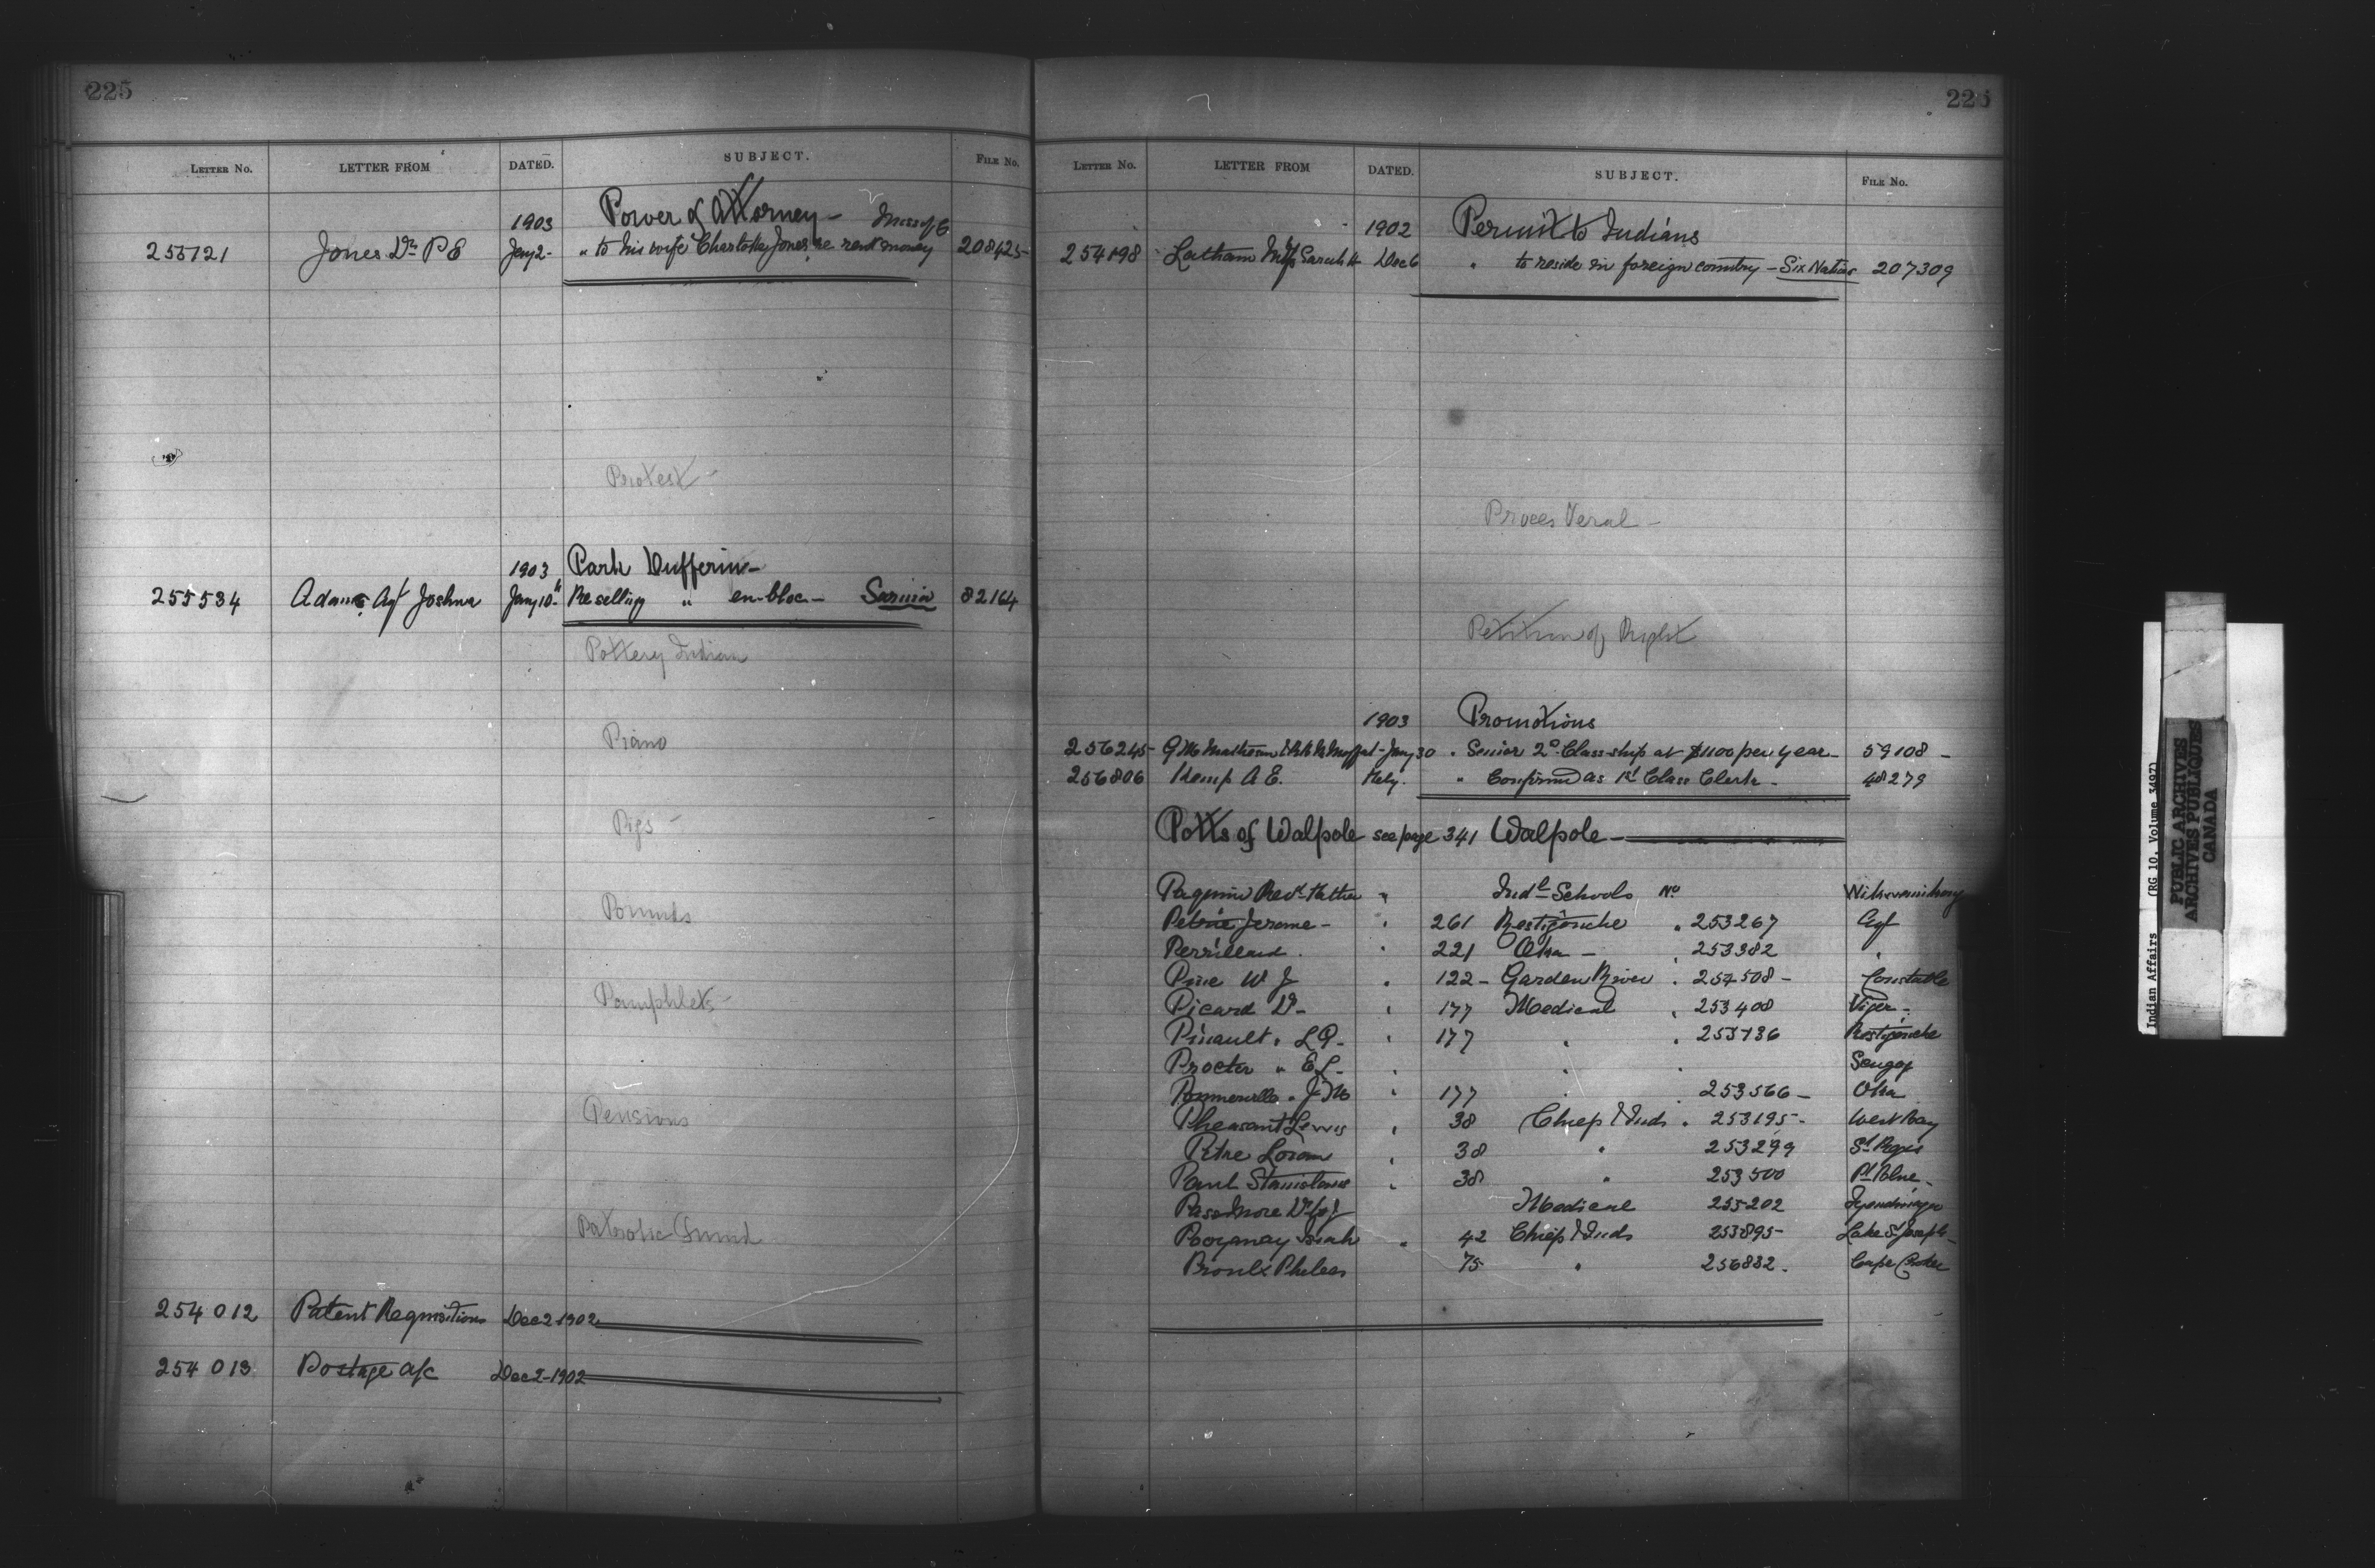 225
LETTER NO. LETTER FROM DATED. SUBJECT. FILE NO.
1903 Power of Attorney - Miss of C
255121 Jones Dr P E Jany 2 - " to his wife Charlotte Jones re rent money 208425
Protest -
1903 Park Dufferin -
255534 Adams Agt Joshua Jany 10 - Re selling " en-bloc - Sarnia 82164
Pottery Indian
Piano
Pigs -
Pounds
Pamphlets -
Pensions
Patriotic Fund
254012 Patent Requisitions Dec 2 - 1902
254013 Postage a/c Dec 2 - 1902
225
LETTER NO. LETTER FROM DATED. SUBJECT. FILE NO.
1902 Permit to Indians
254198 Latham Mrs Sarah H Dec 6 " to reside in foreign country - Six Nations 207309
Proces Veral -
Petition of Right
1903 Promotions
256245 G M Matheson & Moffat - Jany 30 " Senior 2o Class-ship at $1100 per year - 59108 -
256806 Kemp A E. Feby. " Confirmed as 1st Class Clerk - 48279
Potts of Walpole see page 341 Walpole -
Paquin Revd Father " Indl Schools No Wikwemikong
Petrie Jerome - " 261 Restigouche " 253267 Agt
Perrillard " 221 Oka - " 253382 "
Pine W J " 122 - Garden River " 257508 - Constable
Picard D - " 177 Medical " 253408 Viger -
Pinault " L Q - " 177 " " 253736 Restigouche
Procter " E L - " " " Saugog
Pommerville " J M " 177 253566 - Oka
Pheasant Lewis " 38 Chief & Inds " 253195 - West Bay
Petre Loran " 38 " 253299 St Regis
Paul Stanislaus " 38 " 253500 Pt Blue -
Passmore Dr 255202 Medical
Isiah " 42 Chief & Inds 253895 - Lake St Joseph -
Proulx Phileas 75 " 256832 - Cape Croker
Indian Affairs (RG 10, Volume 3497)
PUBLIC ARCHIVES
ARCHIVES PUBLIQUES
CANADA